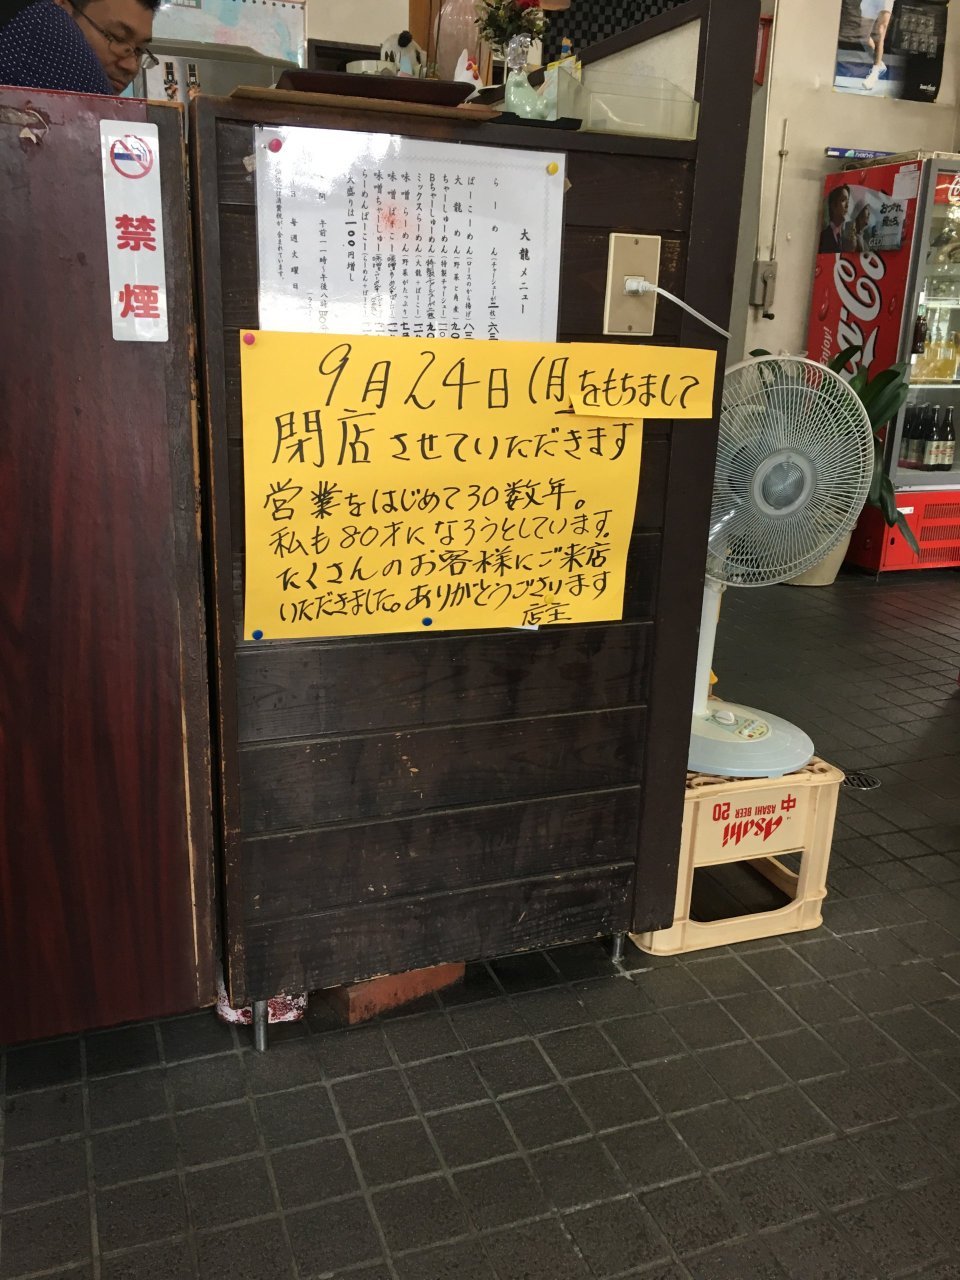 禁煙
大龍メニュー
らーめん(チャーシュー二枚)
ぱーこーめん(ロースのから揚げ)
大龍めん
ちゃーしゅーめん(特製チャーシュー)
Bちゃーしゅーめん
ミックスらーめん(大龍+ぱーこー)
味噌らーめん
味噌ぱーこー
味噌ちゃーしゅー
らーめんぱーこー
大盛りは一〇〇円増し
午前一一時~午後八時
毎週火曜日
9月24日(月をもちまして
閉店させていただきます
営業をはじめて30数年。
私も80才になろうとしています。
たくさんのお客様にご来店
いただきました。ありがとうございます
店主
Enjoy!
Coca-Cola
GEORGIA
Asahi
ASAHI BEER 20
中